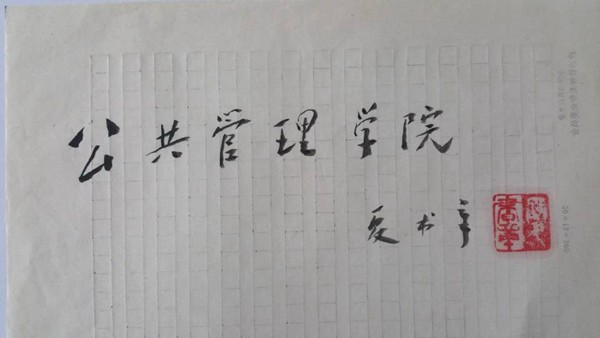 公共管理学院
夏书章